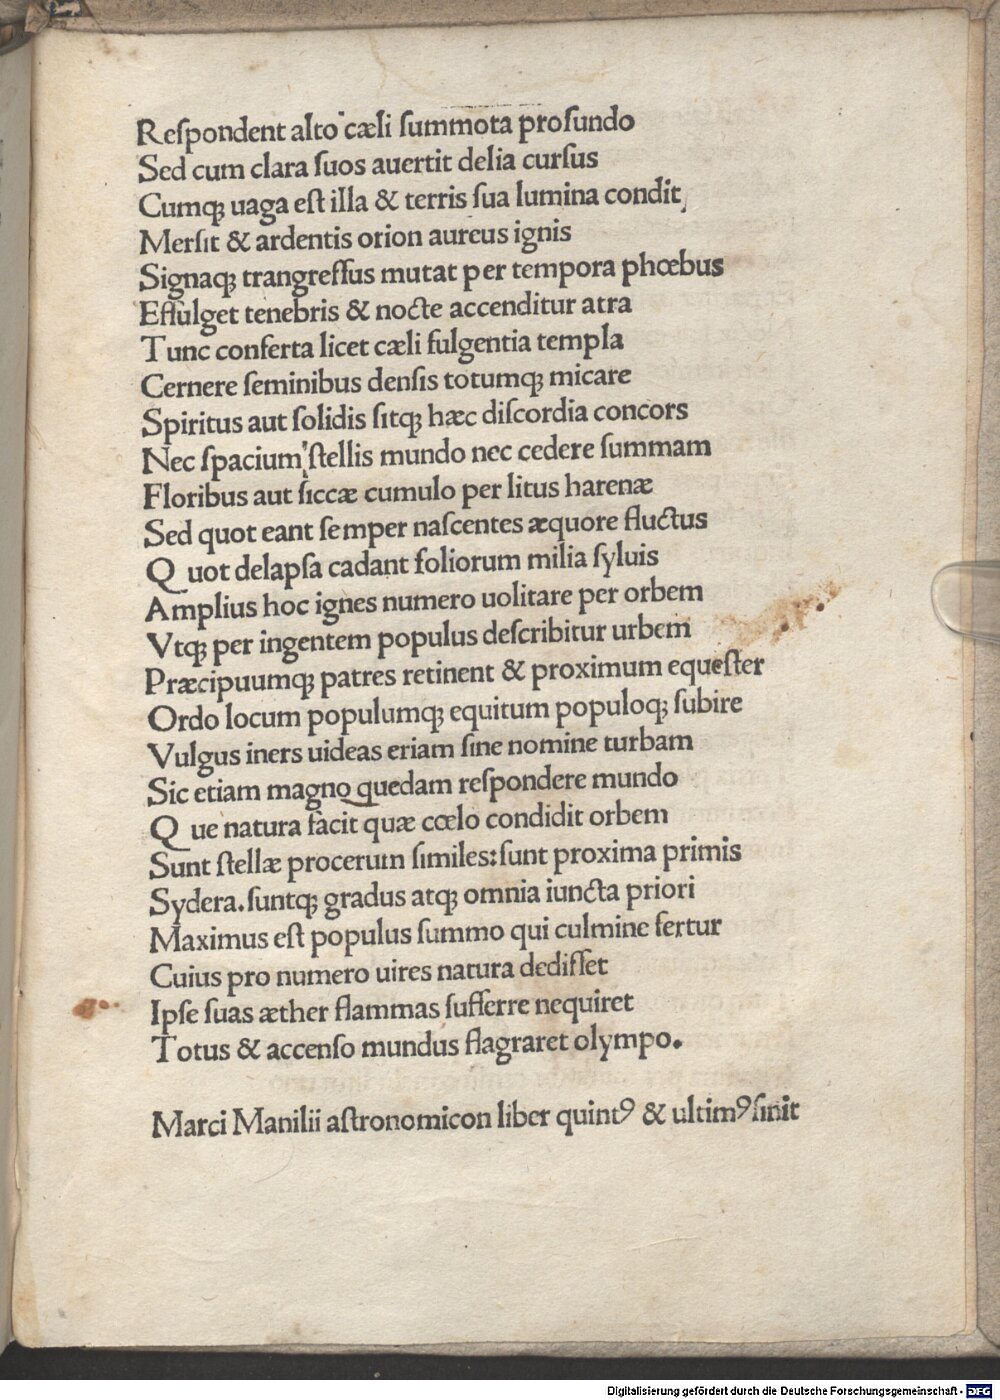 Reſpondent alto cæli ſummota profundo
Sed cum clara ſuos auertit delia curſus
Cumqꝫ uaga eſt illa & terris ſua lumina condit,
Merſit & ardentis orion aureus ignis
Signaqꝫ trangreſſus mutat per tempora phœbus
Effulget tenebris & nocte accenditur atra
Tunc conferta licet cæli fulgentia templa
Cernere ſeminibus denſis totumqꝫ micare
Spiritus aut ſolidis ſitqꝫ hæc diſcordia concors
Nec ſpacium ſtellis mundo nec cedere ſummam
Floribus aut ſiccæ cumulo per litus harenæ
Sed quot eant ſemper naſcentes æquore fluctus
Quot delapſa cadant foliorum milia ſyluis
Amplius hoc ignes numero uolitare per orbem
Vtqꝫ per ingentem populus deſcribitur urbem
Præcipuumqꝫ patres retinent & proximum equeſter
Ordo locum populumqꝫ equitum populoqꝫ ſubire
Vulgus iners uideas eriam ſine nomine turbam
Sic etiam magno quedam reſpondere mundo
Que natura facit quæ cœlo condidit orbem
Sunt ſtellæ procerum ſimiles:ſunt proxima primis
Sydera.ſuntqꝫ gradus atqꝫ omnia iuncta priori
Maximus eſt populus ſummo qui culmine fertur
Cuius pro numero uires natura dediſſet
Ipſe ſuas æther flammas ſufferre nequiret
Totus & accenſo mundus flagraret olympo.
Marci Manilii aſtronomicon liber quintꝰ & ultimꝰ finit
Digitalisierung gefördert durch die Deutsche Forschungsgemeinschaft - DFG